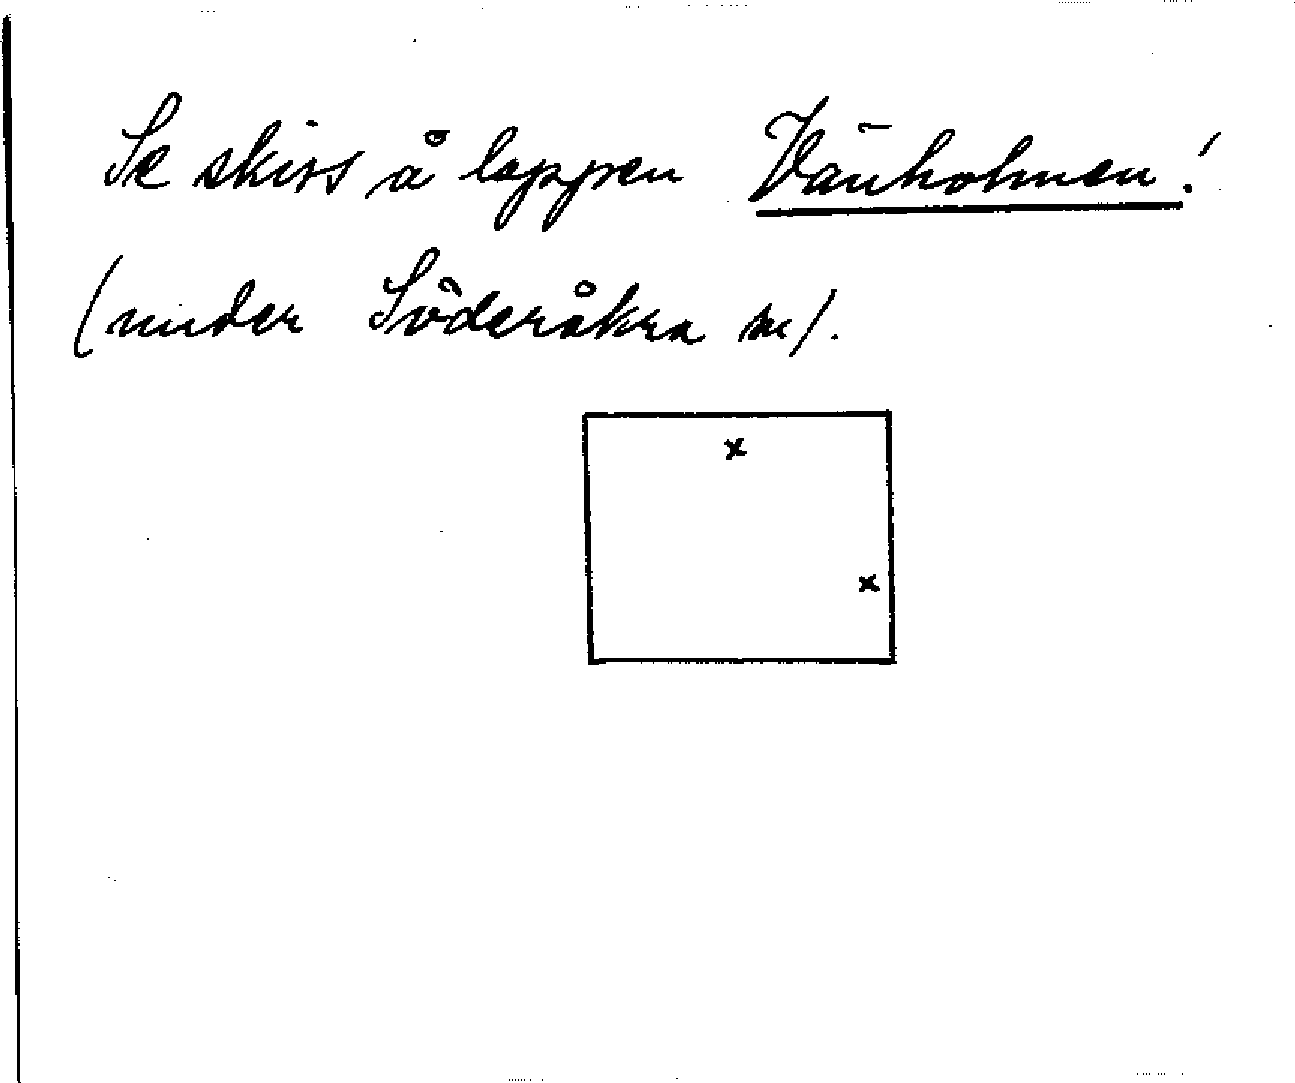 Se skiss å lappen Vänholmen!
(under Söderåkra sn).
x
x